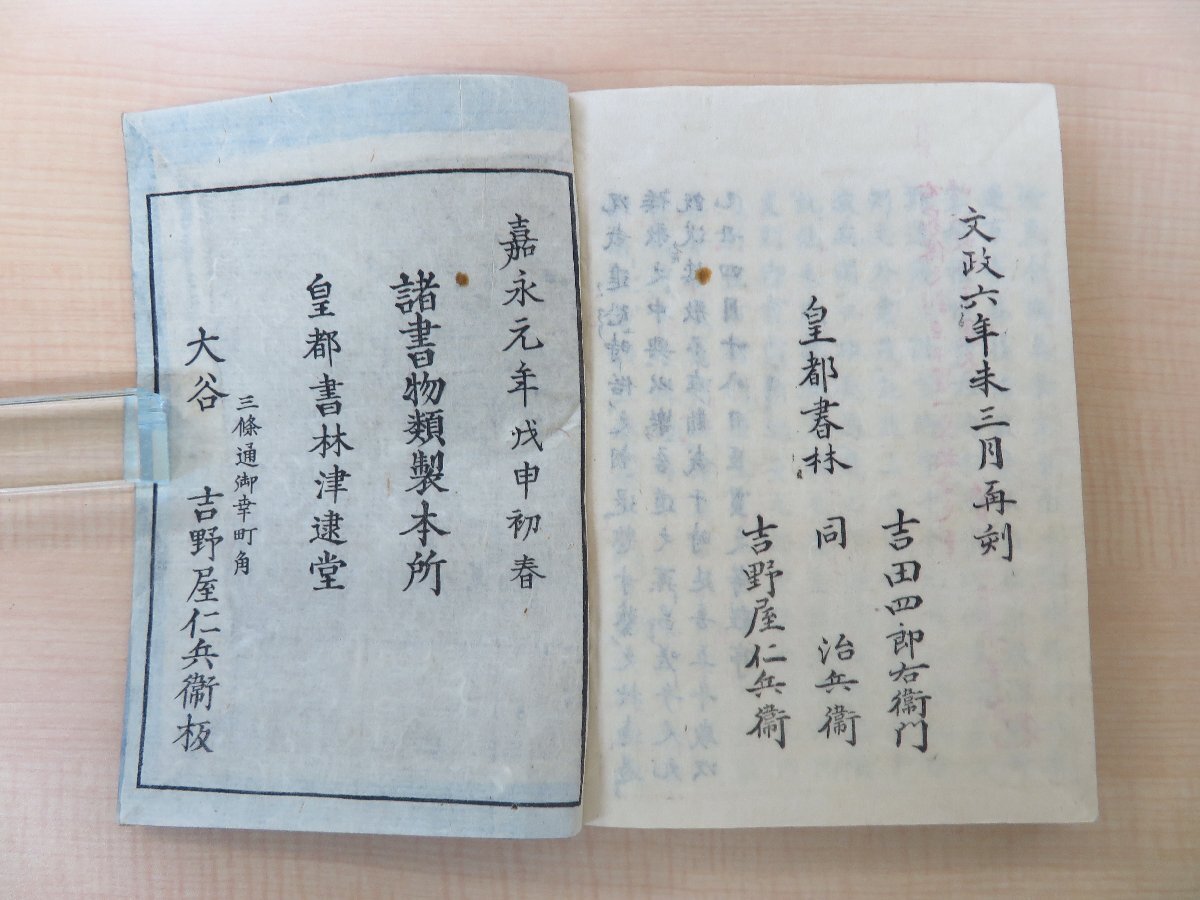 文政六年未三月再刻
吉田四郎右衞門
皇都書林　同　治兵衞
吉野屋仁兵衞
嘉永元年戊申初春
諸書物類製本所
皇都書林津逮堂
三條通御幸町角
大谷　吉野屋仁兵衞板